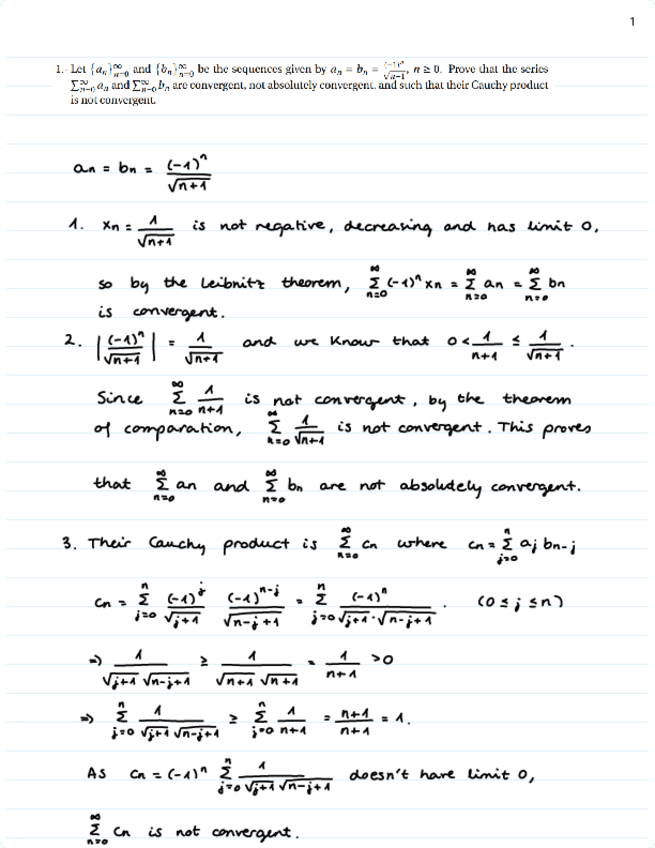 1
1.- Let {aₙ}ₙ₌₀^∞ and {bₙ}ₙ₌₀^∞ be the sequences given by aₙ = bₙ = (-1)ⁿ/√(n-1), n ≥ 0. Prove that the series
∑ₙ₌₀^∞ aₙ and ∑ₙ₌₀^∞ bₙ are convergent, not absolutely convergent, and such that their Cauchy product
is not convergent.
an = bn = (-1)ⁿ/√(n+1)
1. xn = 1/√(n+1) is not negative, decreasing and has limit 0,
so by the Leibnitz theorem, ∑ₙ₌₀^∞ (-1)ⁿ xn = ∑ₙ₌₀^∞ an = ∑ₙ₌₀^∞ bn
is convergent.
2. |(-1)ⁿ/√(n+1)| = 1/√(n+1) and we know that 0 < 1/(n+1) ≤ 1/√(n+1).
Since ∑ₙ₌₀^∞ 1/(n+1) is not convergent, by the theorem
of comparation, ∑ₙ₌₀^∞ 1/√(n+1) is not convergent. This proves
that ∑ₙ₌₀^∞ an and ∑ₙ₌₀^∞ bn are not absolutely convergent.
3. Their Cauchy product is ∑ₙ₌₀^∞ cn where cn = ∑ⱼ₌₀ⁿ aj bn-j
cn = ∑ⱼ₌₀ⁿ (-1)ʲ/√(j+1) (-1)ⁿ⁻ʲ/√(n-j+1) = ∑ⱼ₌₀ⁿ (-1)ⁿ/(√(j+1)·√(n-j+1)). (0 ≤ j ≤ n)
⇒ 1/(√(j+1) √(n-j+1)) ≥ 1/(√(n+1) √(n+1)) = 1/(n+1) > 0
⇒ ∑ⱼ₌₀ⁿ 1/(√(j+1) √(n-j+1)) ≥ ∑ⱼ₌₀ⁿ 1/(n+1) = (n+1)/(n+1) = 1.
As cn = (-1)ⁿ ∑ⱼ₌₀ⁿ 1/(√(j+1) √(n-j+1)) doesn't have limit 0,
∑ₙ₌₀^∞ cn is not convergent.